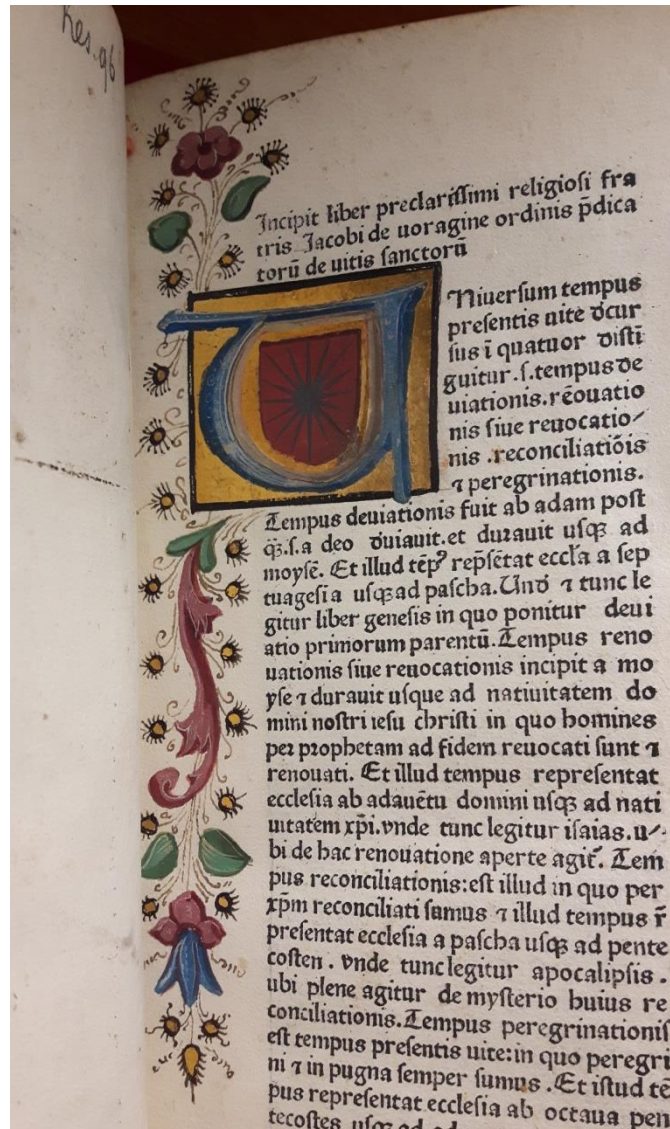 Res. 96
Incipit liber preclarissimi religiosi fra
tris Jacobi de uoragine ordinis p̄dica
torū de uitis sanctorū
UNiuersum tempus
presentis uite d̓cur
sus ī quatuor distī
guitur .s. tempus de
uiationis. rēouatio
nis siue reuocatio⸗
nis .reconciliatiōis
⁊ peregrinationis.
Tempus deuiationis fuit ab adam post
q̄ꝫ.s.a deo d̓uiauit.et durauit usqꝫ ad
moysē. Et illud tēpꝰ rep̄sētat eccl̄a a sep
tuagesia usqꝫ ad pascha. Und̓ ⁊ tunc le
gitur liber genesis in quo ponitur deui
atio primorum parentū. Tempus reno
uationis siue reuocationis incipit a mo
yse ⁊ durauit usque ad natiuitatem do
mini nostri iesu christi in quo homines
per prophetam ad fidem reuocati sunt ⁊
renouati. Et illud tempus representat
ecclesia ab aduētu domini usqꝫ ad nati
uitatem xp̄i. vnde tunc legitur isaias. u⸗
bi de hac renouatione aperte agit̄. Tem
pus reconciliationis: est illud in quo per
xp̄m reconciliati sumus ⁊ illud tempus r̄
presentat ecclesia a pascha usqꝫ ad pente
costen . vnde tunc legitur apocalipsis .
ubi plene agitur de mysterio huius re
conciliationis. Tempus peregrinationis
est tempus presentis uite: in quo peregri
ni ⁊ in pugna semper sumus . Et istud tē
pus representat ecclesia ab octaua pen
tecostes usqꝫ ad